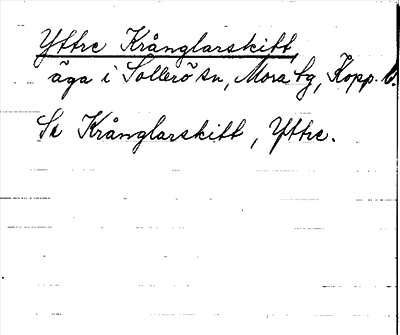 Yttre Krånglarskift,
äga i Sollerö sn, Mora tg, Kopp. l.
Se Krånglarskift, Yttre.